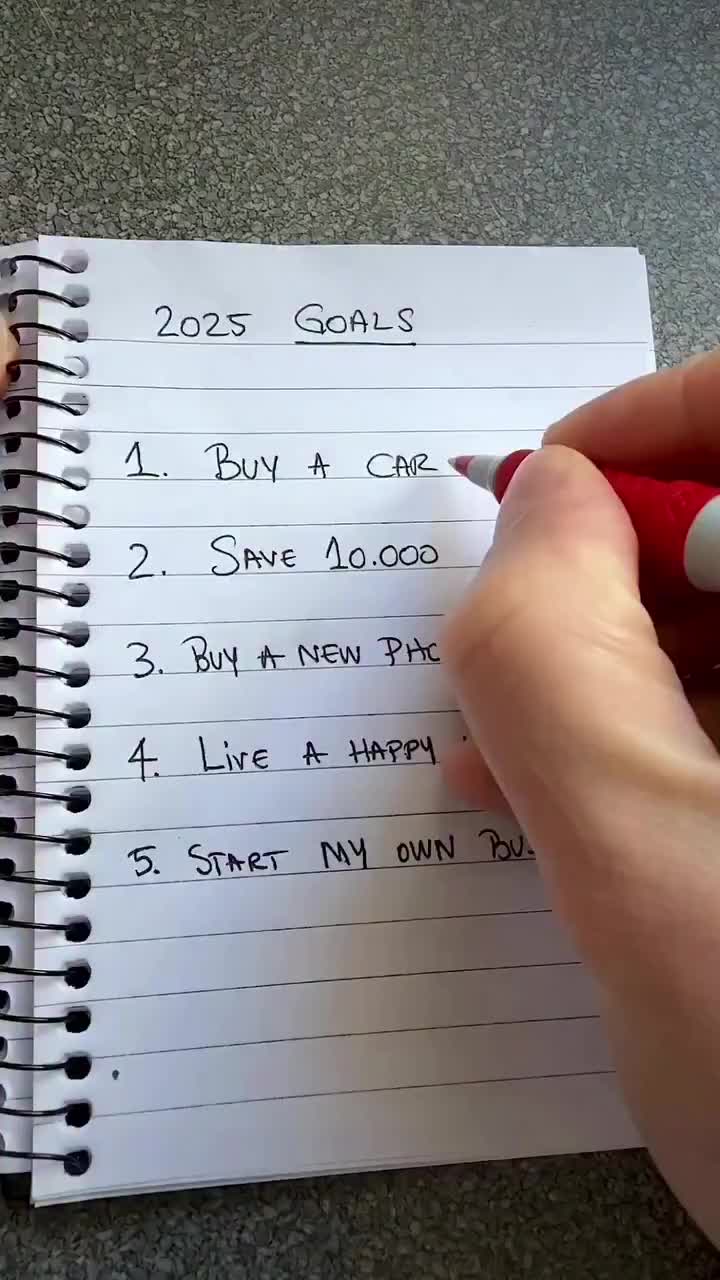 2025 GOALS
1. BUY A CAR
2. SAVE 10.000
3. BUY A NEW
4. LiVE A HAPPY
5. START MY OWN